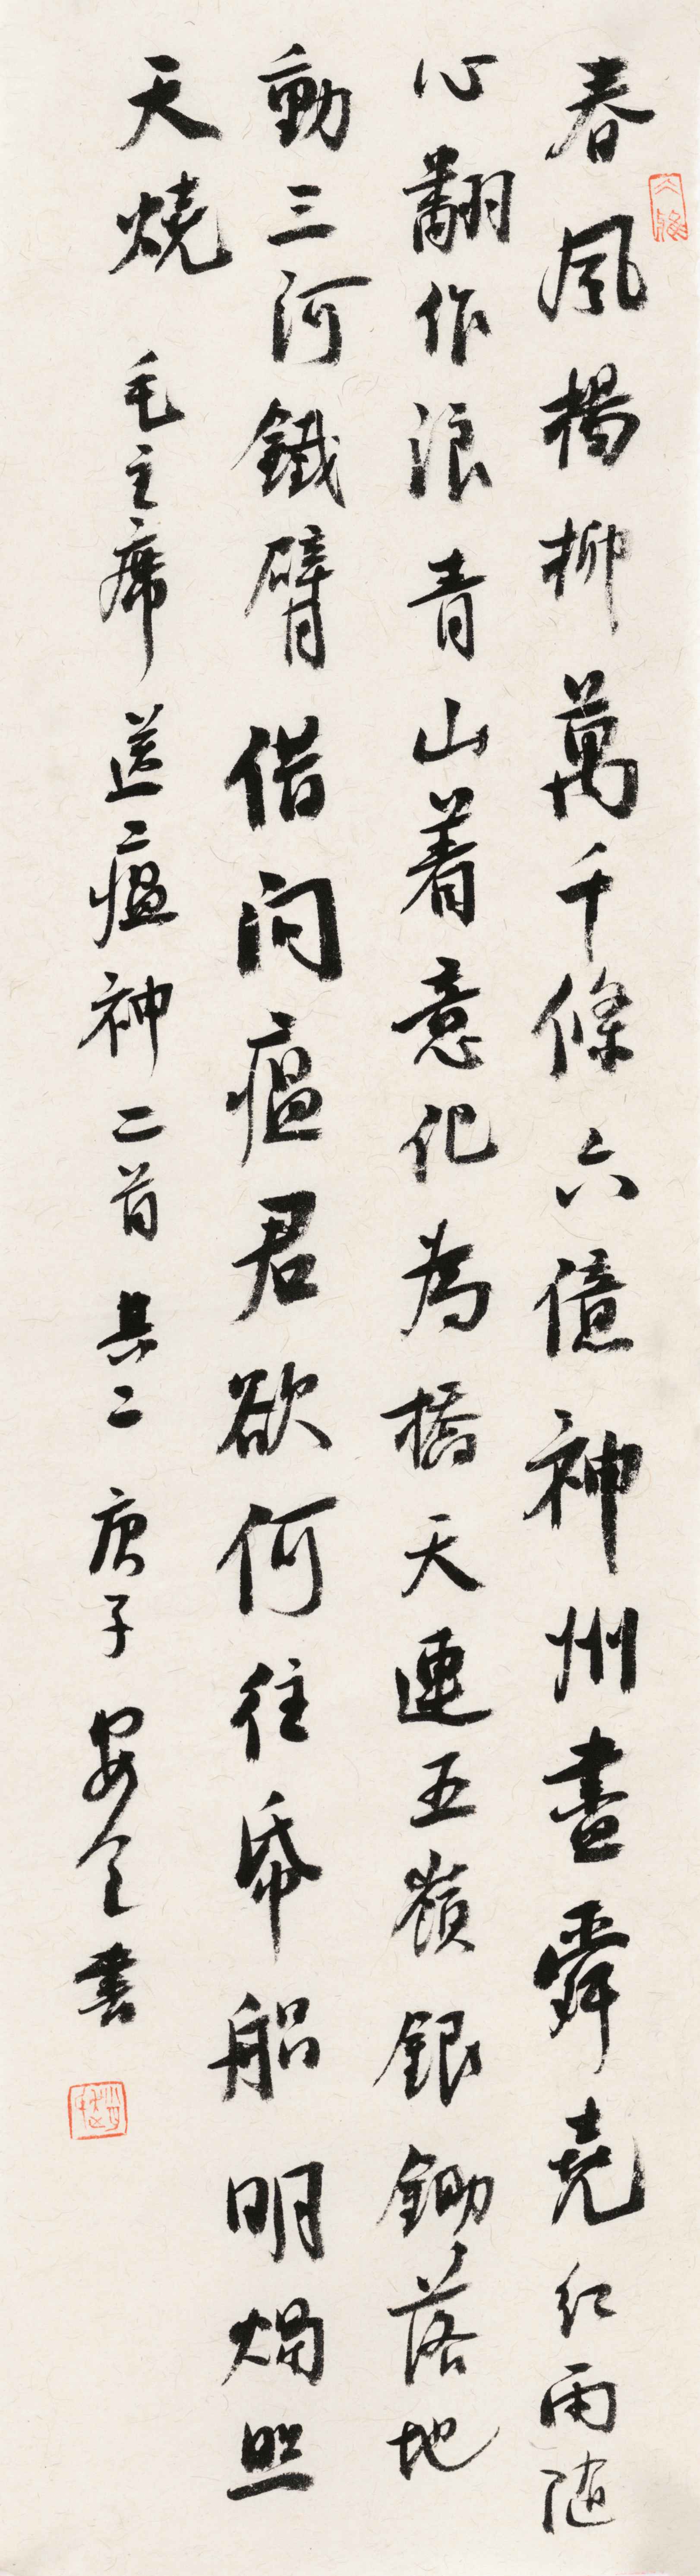 春風楊柳萬千條六億神州盡舜堯紅雨隨
心翻作浪青山着意化為橋天連五嶺銀鋤落地
動三河鐵臂借問瘟君欲何往帋船明燭照
天燒 毛主席送瘟神二首其二 庚子 安全書